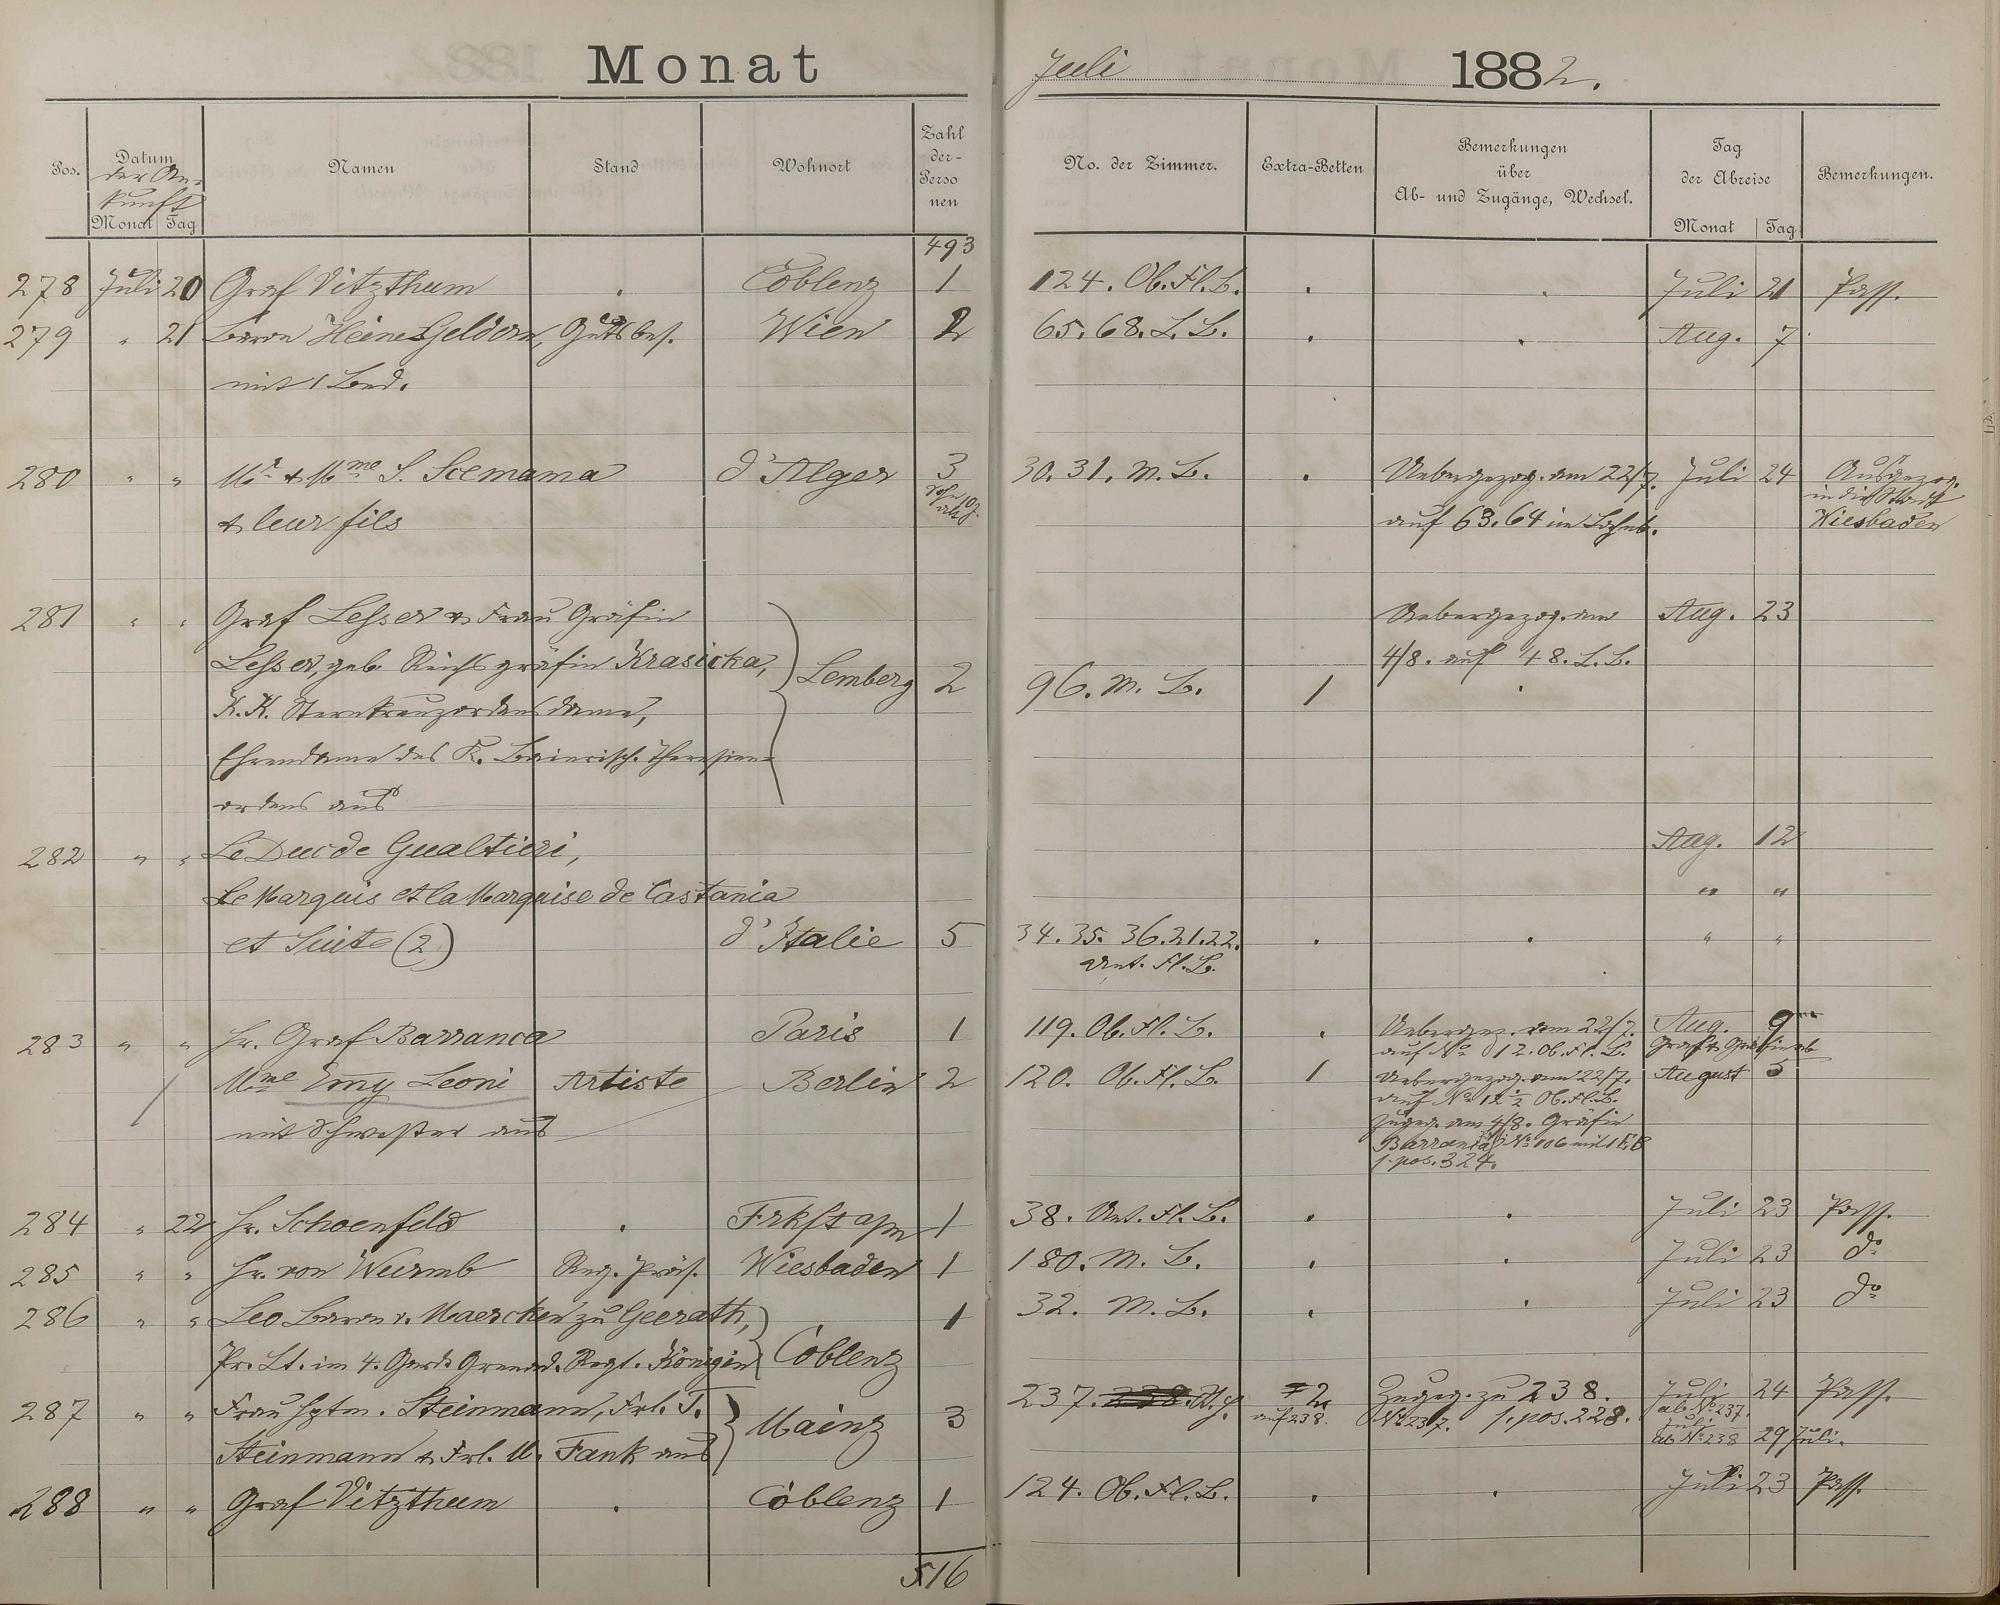 Monat Juli 1882.
Pos. Datum der Ankunft Monat Tag Namen Stand Wohnort Zahl der Personen No. der Zimmer. Extra-Betten Bemerkungen über Ab- und Zugänge, Wechsel. Tag der Abreise Monat Tag Bemerkungen.
493
278 Juli 20 Graf Vitzthum . Coblenz 1 124. Ob. Fl. B. . . Juli 21 Pass.
279 " 21 Baron Heine Geldern, Gutsbes. Wien 2 65. 68. L. B. . . Aug. 7
mit 1 Bed.
280 " " Mr. & Mme S. Scemama d'Alger 3 30. 31. M. B. . Uebergezog. am 22/7. Juli 24 Ausgezog.
& leur fils Sohn 10 J. alt auf 63. 64 im Lahnb. in die Stadt
Wiesbaden
281 " " Graf Lesser & Frau Gräfin Uebergezog. am Aug. 23
Lesser, geb. Reichsgräfin Krasicka, Lemberg 2 96. M. B. 1 4/8. auf 48. L. B.
K. K. Sternkreuzordensdame,
Ehrendame des K. Baierisch. Theresien-
ordens aus
282 " " Le Duc de Gualtieri, Aug. 12
Le Marquis et la Marquise de Castania " "
et Suite (2) d'Italie 5 34. 35. 36. 21. 22. . . " "
Unt. Fl. B.
283 " " Hr. Graf Barranca Paris 1 119. Ob. Fl. B. . Uebergez. am 22/7. Aug. 9
auf No 12. Ob. Fl. B. Graf & Gräfin ab
Mme Emy Leoni Artiste Berlin 2 120. Ob. Fl. B. 1 Uebergezog. am 22/7. August 5
auf No 12 ½ Ob. Fl. B.
mit Schwester aus Zugeg. am 4/8. Gräfin
Barranca No 106 mit 1 E. B
s. pos. 324.
284 " 22 Hr. Schoenfeld . Frkft a/m 1 38. Unt. Fl. B. . . Juli 23 Pass.
285 " " Hr. von Wurmb Reg. Präs. Wiesbaden 1 180. M. B. . . Juli 23 do
286 " " Leo Baron v. Maercken zu Geerath, 1 32. M. B. . . Juli 23 do
Pr. Lt. im 4. Garde Grenad. Regt. Königin Coblenz
287 " " Frau Hptm. Steinmann, Frl. T. Mainz 3 237. 2 Zugeg. zu 238. Juli 24 Pass.
auf 238. No 237. s. pos. 228. ab No 237.
Steinmann & Frl. M. Fank aus Juli
ab No 238 29 Juli.
288 " " Graf Vitzthum . Coblenz 1 124. Ob. Fl. B. . . Juli 23 Pass.
516